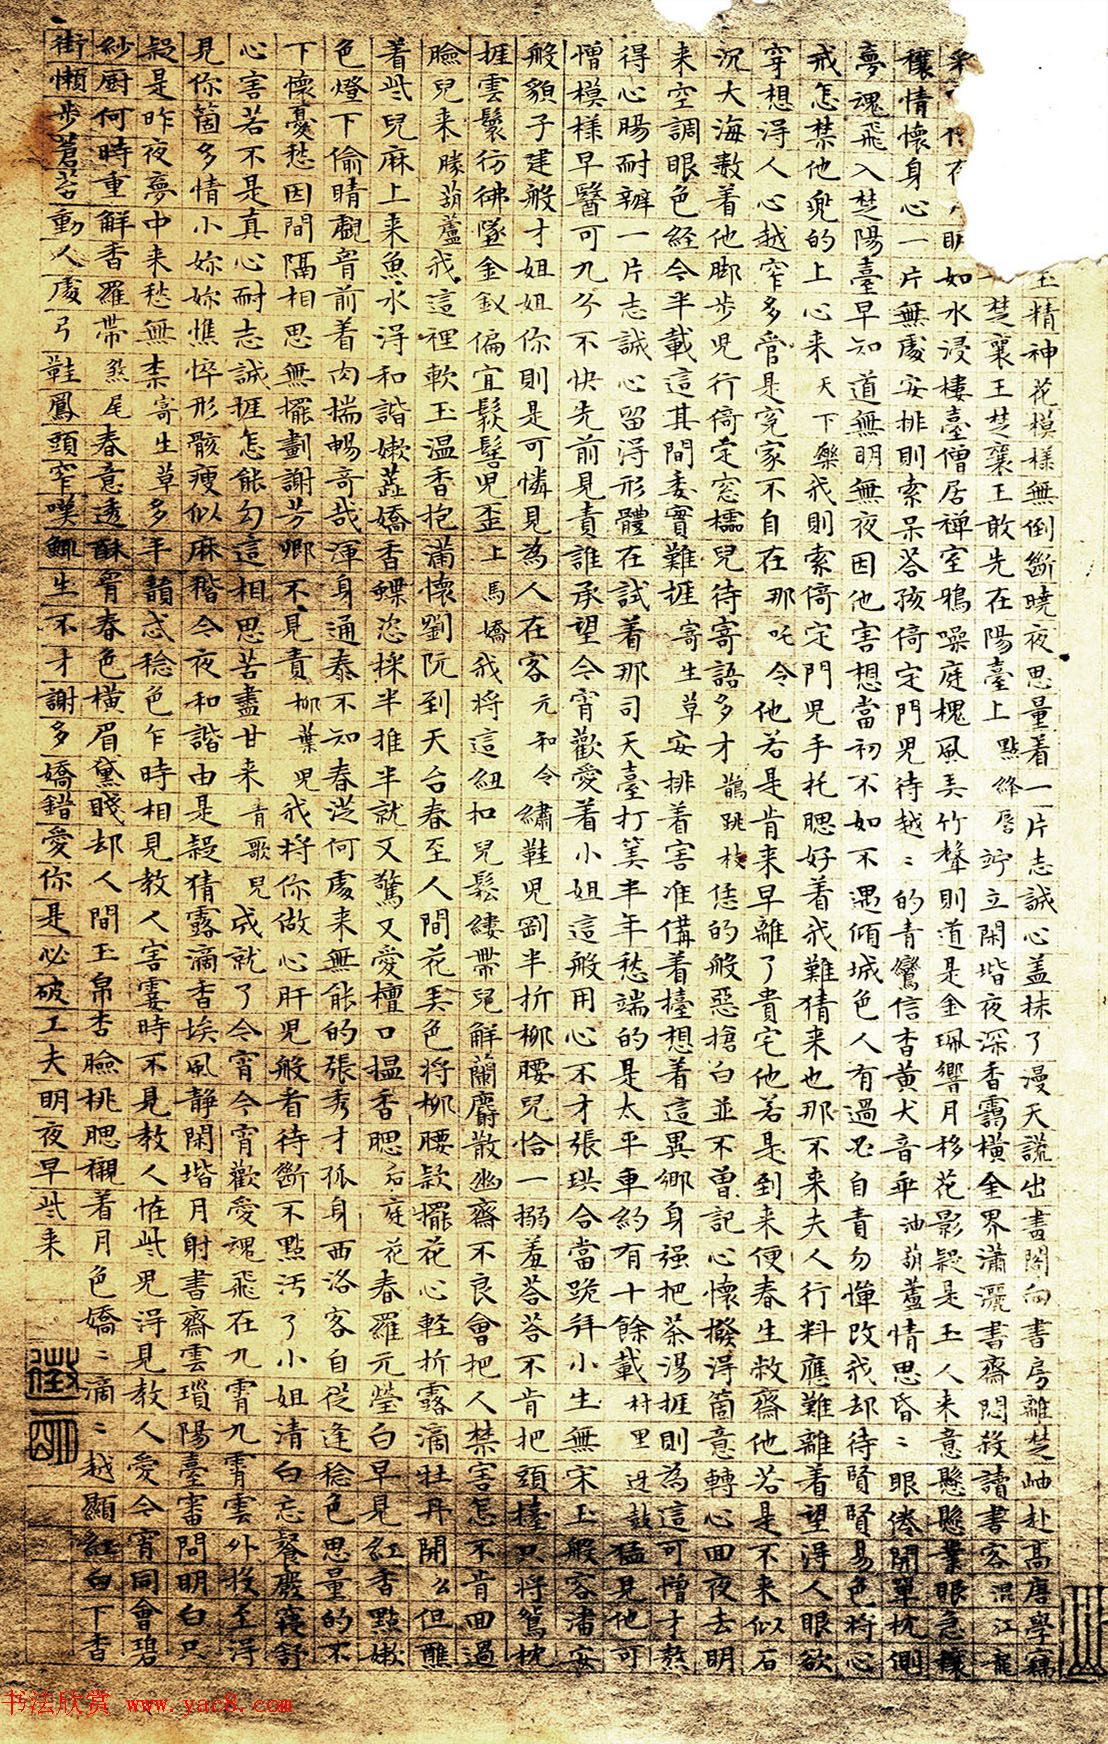 玉精神花模樣無倒斷曉夜思量着一片志誠心盖抹了漫天謊出畫閣向書房離楚岫赴高唐學竊
楚襄王楚襄王敢先在陽臺上點絳唇竚立閑堦夜深香靄橫金界瀟灑書齋悶殺讀書客混江龍
明如水浸樓臺僧居禅室鴉噪庭槐風弄竹聲則道是金珮響月移花影疑是玉人来意懸懸業眼急穰
穰情懷身心一片無處安排則索呆荅孩倚定門児待越〻的青鸞信杳黄犬音乖油葫蘆情思昏〻眼倦開單枕側
夢魂飛入楚陽臺早知道無明無夜因他害想當初不如不遇傾城色人有過必自責勿憚改我却待賢賢易色將心
戒怎禁他兜的上心来天下樂我則索倚定門児手托腮好着我難猜来也那不来夫人行料應難離着望得人眼欲
穿想得人心越窄多管是冤家不自在那吒令他若是肯来早離了貴宅他若是到来便春生敝齋他若是不来似石
沉大海數着他脚步児行倚定窓櫺児待寄語多才鵲踏枝恁的般惡搶白並不曾記心懷撥得箇意轉心回夜去明
来空調眼色経今半載這其間委實難捱寄生草安排着害准備着擡想着這異鄉身强把茶湯捱則為這可憎才熬
得心腸耐辦一片志誠心留得形體在試着那司天臺打筭半年愁端的是太平車約有十餘載村里迓鼓猛見他可
憎模樣早醫可九分不快先前見責誰承望今宵歡愛着小姐這般用心不才張珙合當跪拜小生無宋玉般容潘安
般貌子建般才姐姐你則是可憐見為人在客元和令繡鞋児剛半折柳腰児恰一搦羞荅荅不肯把頭擡只將鴛枕
捱雲鬟彷彿墜金釵偏宜鬏髻児歪上馬嬌我將這紐扣兒鬆縷帶兒解蘭麝散幽齋不良會把人禁害怎不肯回過
臉兒来勝葫蘆我這裡軟玉温香抱滿懷劉阮到天台春至人間花弄色將柳腰款擺花心輕折露滴牡丹開么但蘸
着些兒麻上来魚水得和諧嫩蕋嬌香蝶恣採半推半就又驚又愛檀口揾香腮后庭花春羅元瑩白早見紅香點嫩
色燈下偷睛覷胷前着肉揣暢奇哉渾身通泰不知春従何處来無能的張秀才孤身西洛客自従逢稔色思量的不
下懷憂愁因間隔相思無擺劃謝芳卿不見責柳葉児我將你做心肝児般看待斷不點汚了小姐清白忘餐廢寝舒
心害若不是真心耐志誠捱怎能勾這相思苦盡甘来青歌兒成就了今宵今宵歡愛魂飛在九霄九霄雲外投至得
見你箇多情小妳妳憔悴形骸瘦似麻稭今夜和諧由是疑猜露滴香埃風静閑堦月射書齋雲瑣陽臺審問明白只
疑是昨夜夢中来愁無柰寄生草多丰韻忒稔色乍時相見教人害霎時不見教人恠些児得見教人愛今宵同會碧
紗厨何時重解香羅帶煞尾春意透酥胷春色橫眉黛賤却人間玉帛杏臉桃腮襯着月色嬌〻滴〻越顯紅白下香
街懶步蒼苔動人處弓鞋鳳頭窄嘆鯫生不才謝多嬌錯愛你是必破工夫明夜早些来
徵明
书法欣赏 www.yac8.com